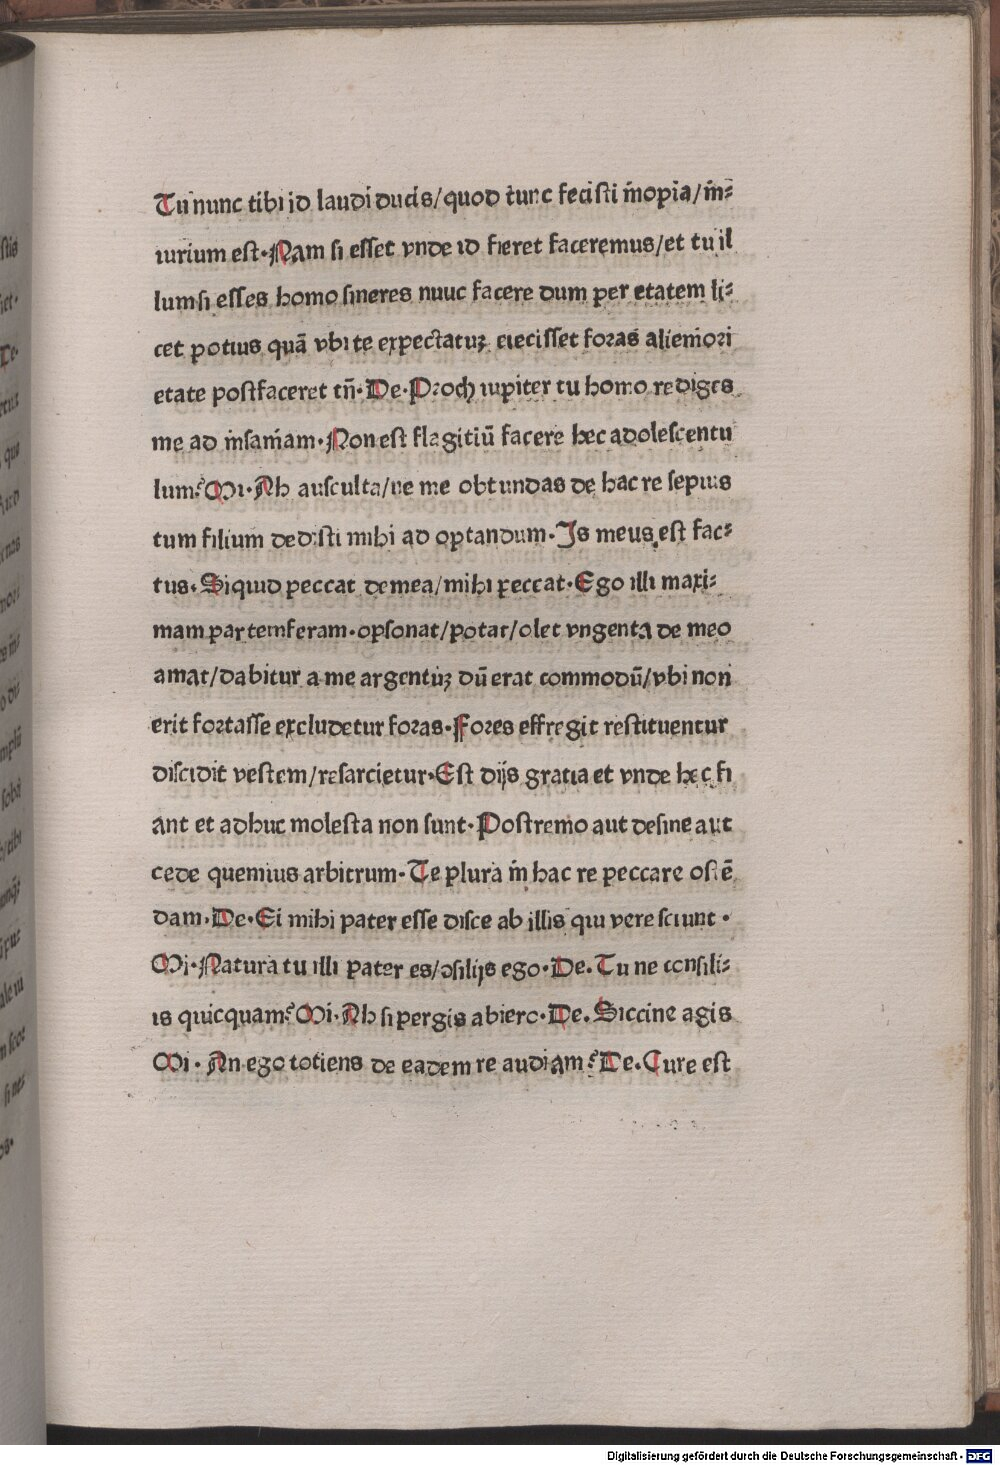 Tu nunc tibi id laudi ducis/quod tunc fecisti īopia/in⸗
iurium est·Nam si esset vnde id fieret faceremus/et tu il
lum si esses homo sineres nuuc facere dum per etatem li⸗
cet potius quā vbi te expectatuꝫ eiecisset foras alieniori
etate postfaceret tn̄·De·Proch iupiter tu homo rediges
me ad insaniam·Non est flagitiū facere hec adolescentu
lum?Mi·Ah ausculta/ne me obtundas de hac re sepius
tum filium dedisti mihi ad optandum·Is meus est fac⸗
tus·Siquid peccat demea/mihi peccat·Ego illi maxi⸗
mam partem feram·opsonat/potat/olet vngenta de meo
amat/dabitur a me argentuꝫ dū erat commodū/vbi non
erit fortasse excludetur foras·Fores effregit restituentur
discidit vestem/resarcietur·Est dijs gratia et vnde hec fi
ant et adhuc molesta non sunt·Postremo aut desine aut
cede quemius arbitrum·Te plura in hac re peccare ostē
dam·De·Ei mihi pater esse disce ab illis qui vere sciunt·
Mi·Natura tu illi pater es/ↄsilijs ego·De·Tu ne consili⸗
is quicquam?Mi·Ah si pergis abiero·De·Siccine agis
Mi·An ego totiens de eadem re audiam?De·Cure est
Digitalisierung gefördert durch die Deutsche Forschungsgemeinschaft - DFG